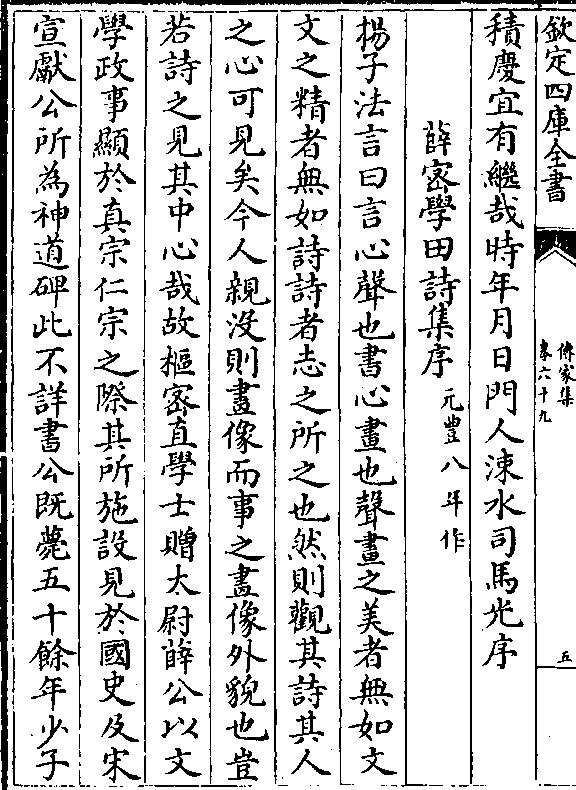 欽定四庫全書
傳家集
卷六十九
五
積慶宜有繼哉時年月日門人涑水司馬光序
薛密學田詩集序 元豊八年作
揚子法言曰言心聲也書心畫也聲畫之美者無如文
文之精者無如詩詩者志之所之也然則觀其詩其人
之心可見矣今人親沒則畫像而事之畫像外貌也豈
若詩之見其中心哉故樞密直學士贈太尉薛公以文
學政事顯於真宗仁宗之際其所施設見於國史及宋
宣獻公所為神道碑此不詳書公既薨五十餘年少子